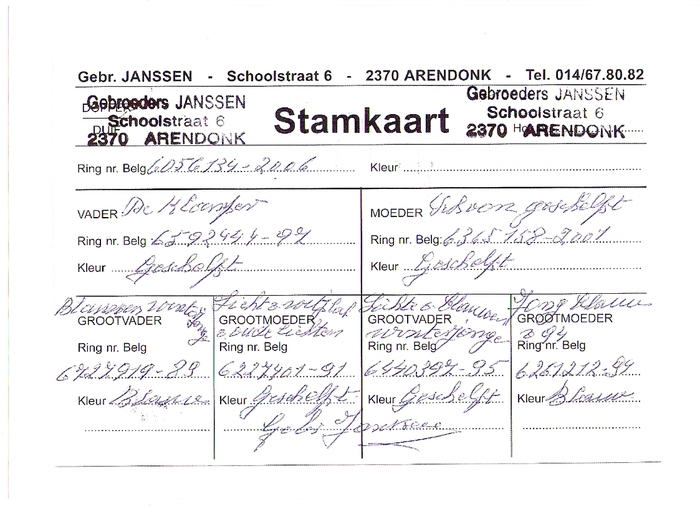 Gebr. JANSSEN - Schoolstraat 6 - 2370 ARENDONK - Tel. 014/67.80.82
Gebroeders JANSSEN
Schoolstraat 6
2370 ARENDONK
Stamkaart
Gebroeders JANSSEN
Schoolstraat 6
2370 ARENDONK
Ring nr. Belg 6056134-2006
Kleur
VADER De Klamper
Ring nr. Belg 6592444-97
Kleur Geschelft
MOEDER Schoon geschelft
Ring nr. Belg: 6365158-2001
Kleur Geschelft
Blauwen
GROOTVADER
Ring nr. Belg
6427919-89
Kleur Blauw
Lichte
GROOTMOEDER
oude lichten
Ring nr. Belg
6227401-91
Kleur Geschelft
Lichte
GROOTVADER
winterjonge
Ring nr. Belg
6440397-95
Kleur Geschelft
Jong Blauw
GROOTMOEDER
94
Ring nr. Belg
6261212-94
Kleur Blauw
Gebr Janssen